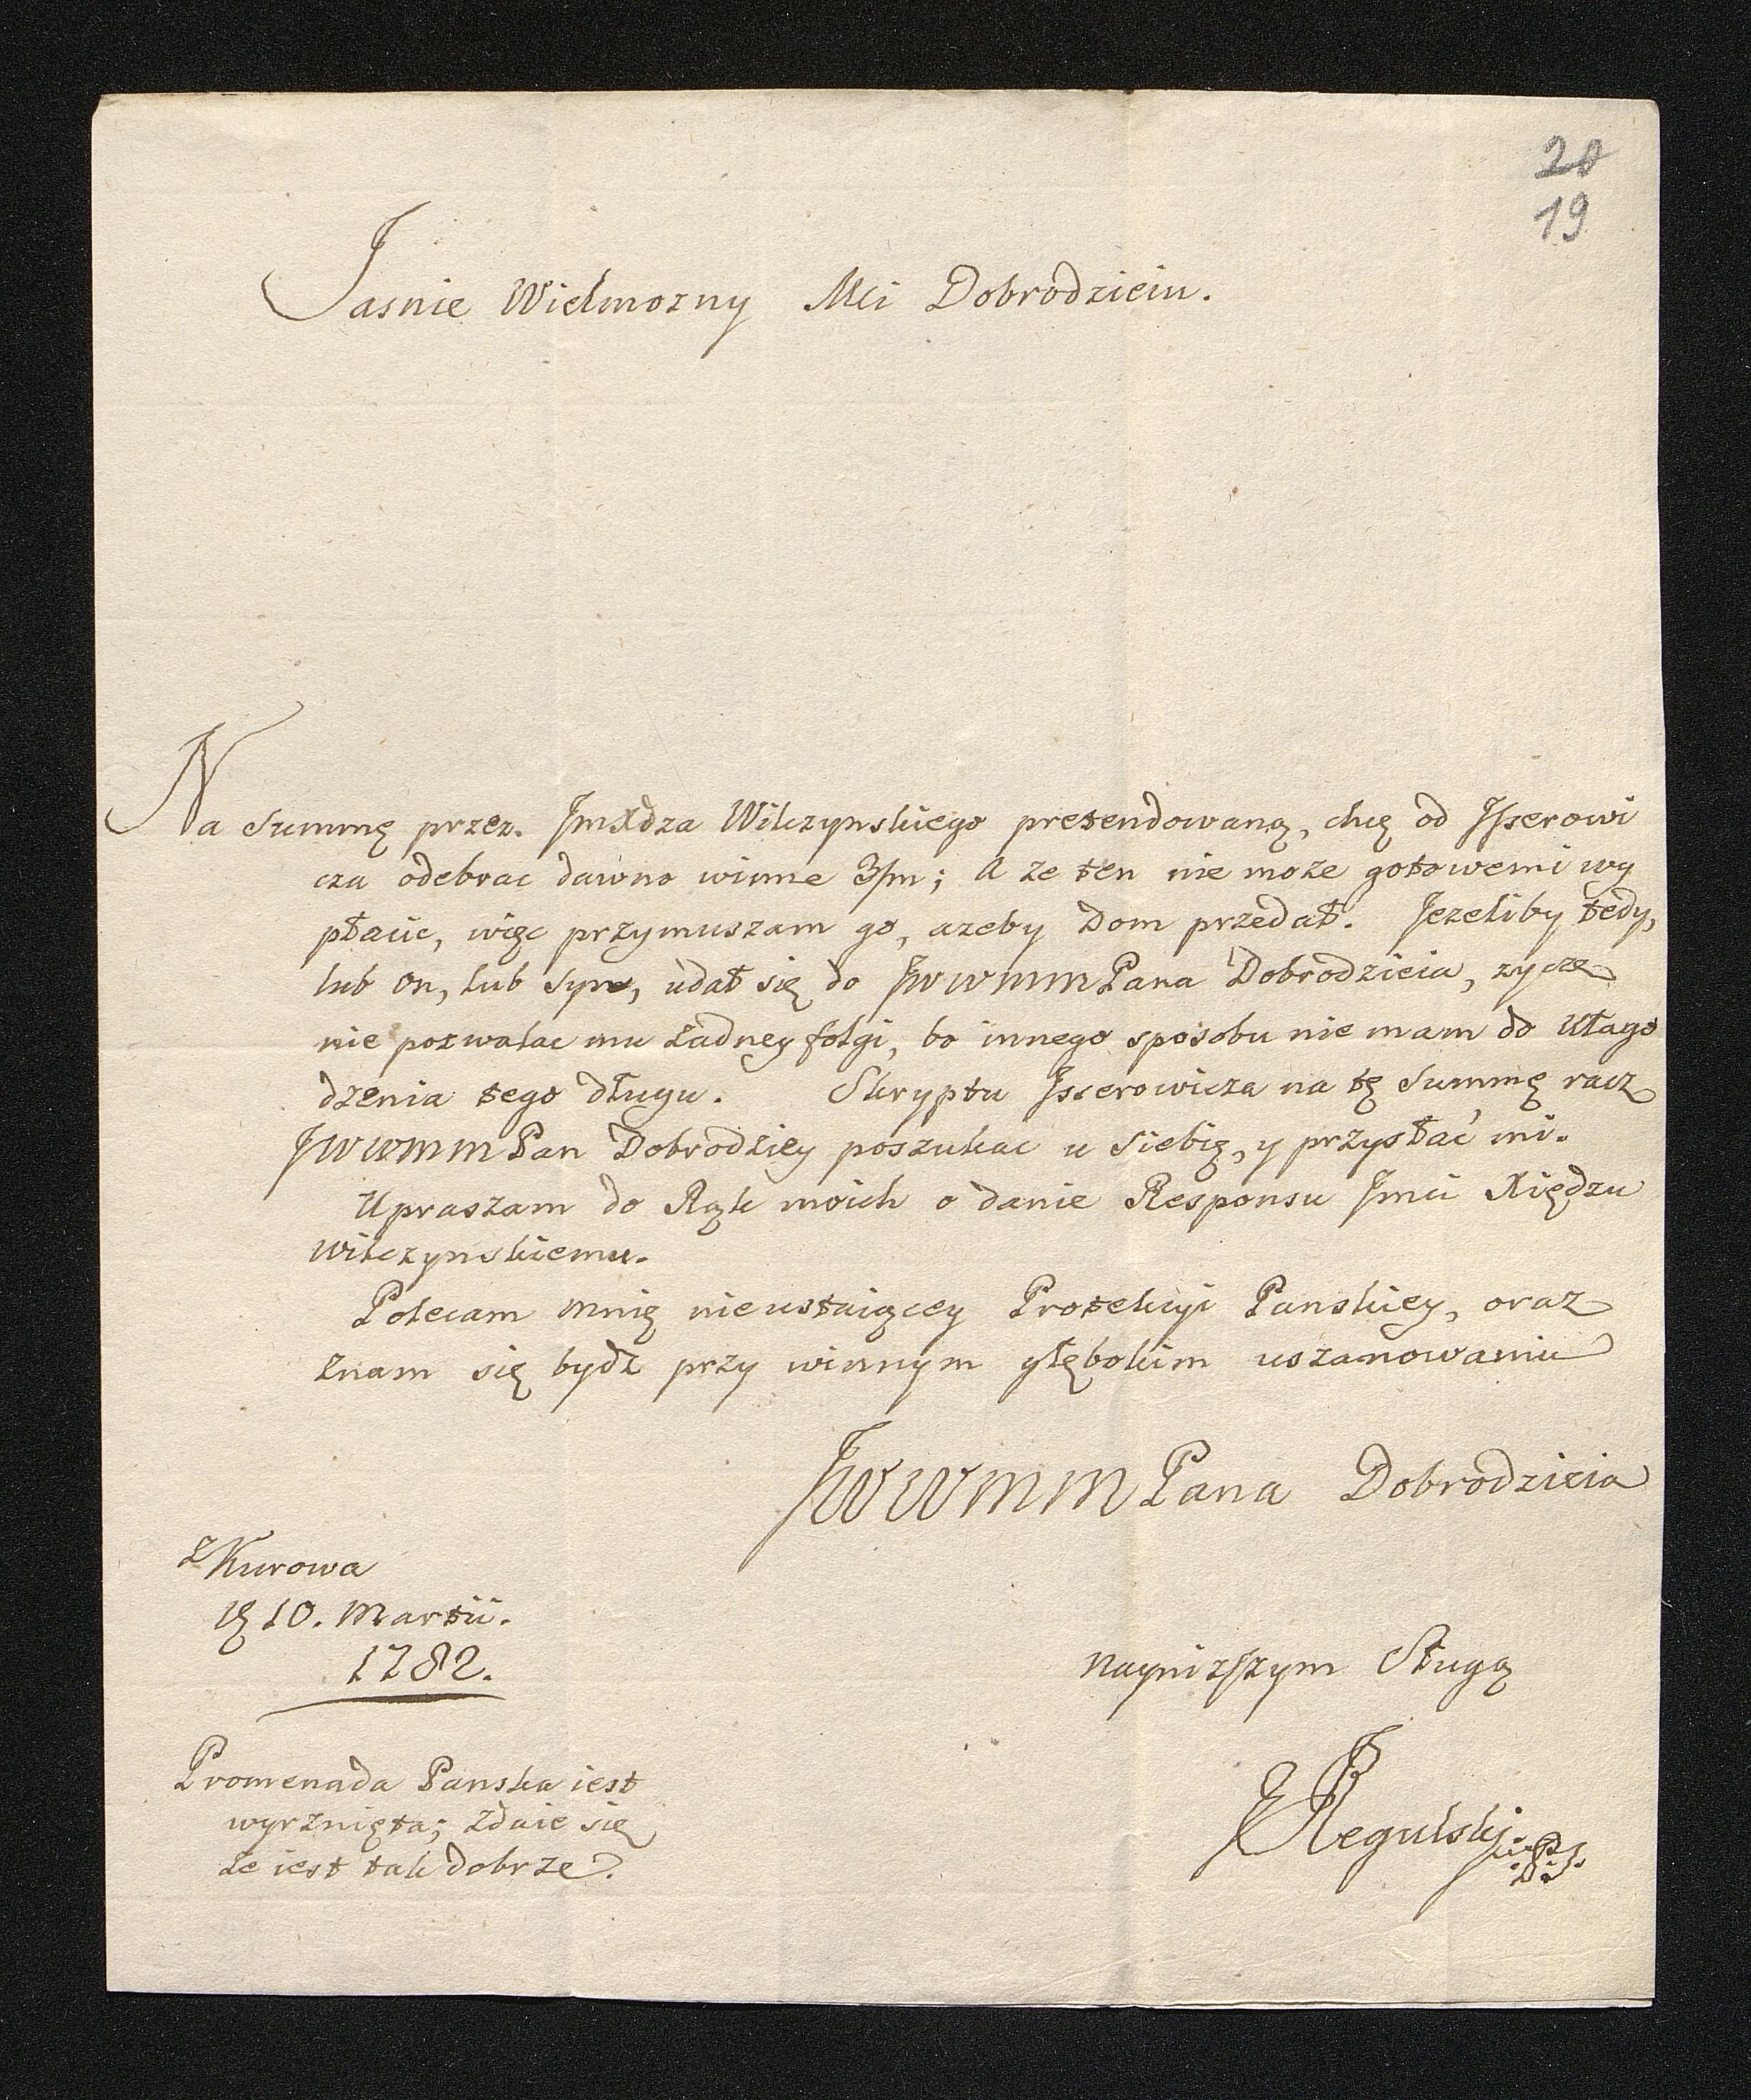 20
19
Jasnie Wielmozny Mci Dobrodzieiu.
Na Summę przez. JmXdza Wilczynskiego pretendowaną, chcę od Jsserowi
cza odebrac dawno winne 3/m; A ze ten nie może gotowemi wy
płacic, więc przymuszam go, azeby Dom przedał. Jezeliby tedy,
lub on, lub syn, udał się do JWWMMPana Dobrodzieia, zyczę
nie pozwalac mu żadney folgi, bo innego sposobu nie mam do Ułago
dzenia tego długu. Skryptu Jsserowicza na tę Summę racz
JWWMMPan Dobrodziey poszukac u siebię, y przysłać mi.
Upraszam do Rąk moich o danie Responsu Jmci Xiędzu
Wilczynskiemu.
Polecam mnię nieustaiącey Protekcyi Panskiey, oraz
Znam się bydź przy winnym głębokim uszanowaniu
JWWMMPana Dobrodzieia
z Kurowa
10. Martii.
1782.
Nayniższym Sługą
Regulski
Promenada Panska iest
wyrznięta; zdaie się
że iest tak dobrze.